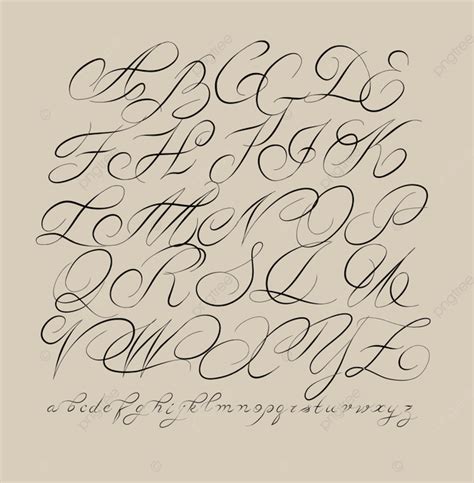 A B C G D E
F H I J K
L M N O P
Q R S T U
V W X Y Z
a b c d e f g h i j k l m n o p q r s t u v w x y z
pngtree